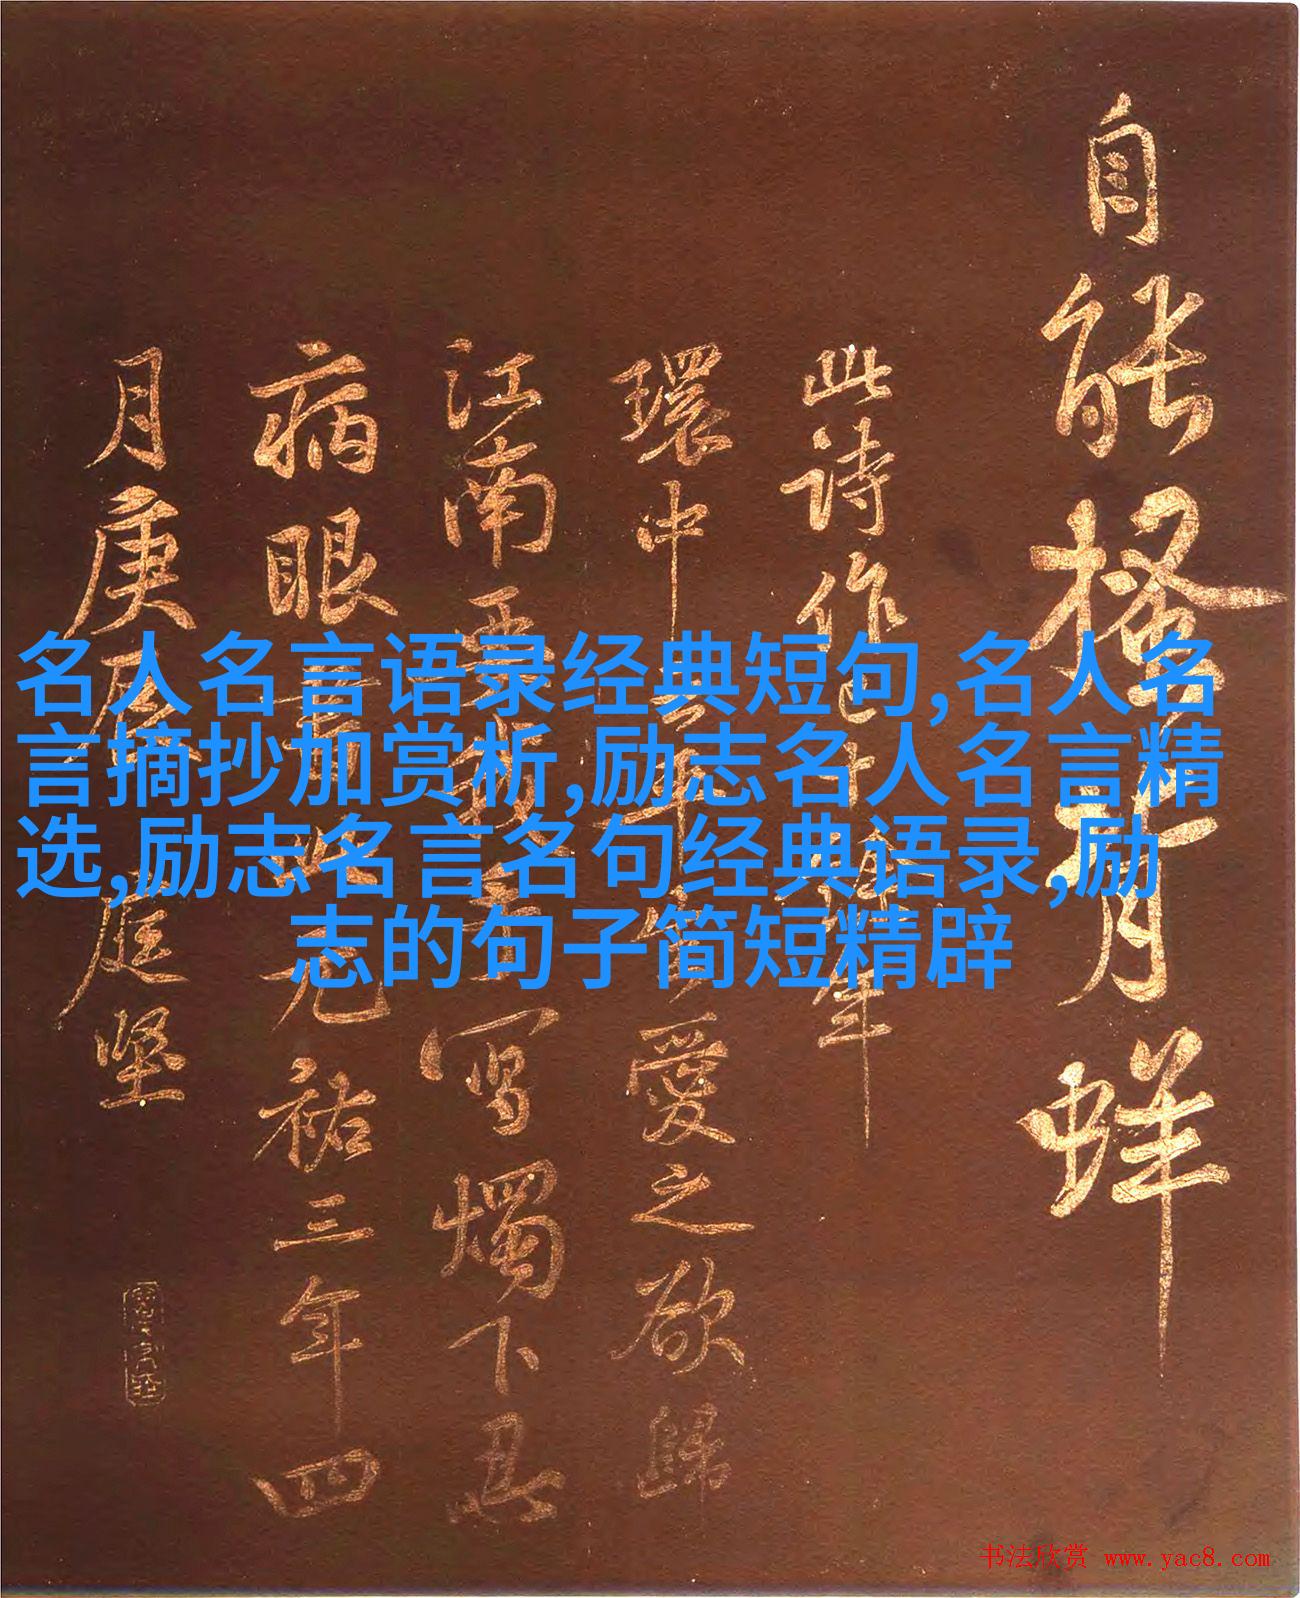 自能搔背蛘
此詩作已十年
環中年愛之欲歸
江南要我寫燭下忍
病眼書此元祐三年四
月庚辰庭堅
名人名言语录经典短句,名人名
言摘抄加赏析,励志名人名言精
选,励志名言名句经典语录,励
志的句子简短精辟
书法欣赏 www.yac8.com